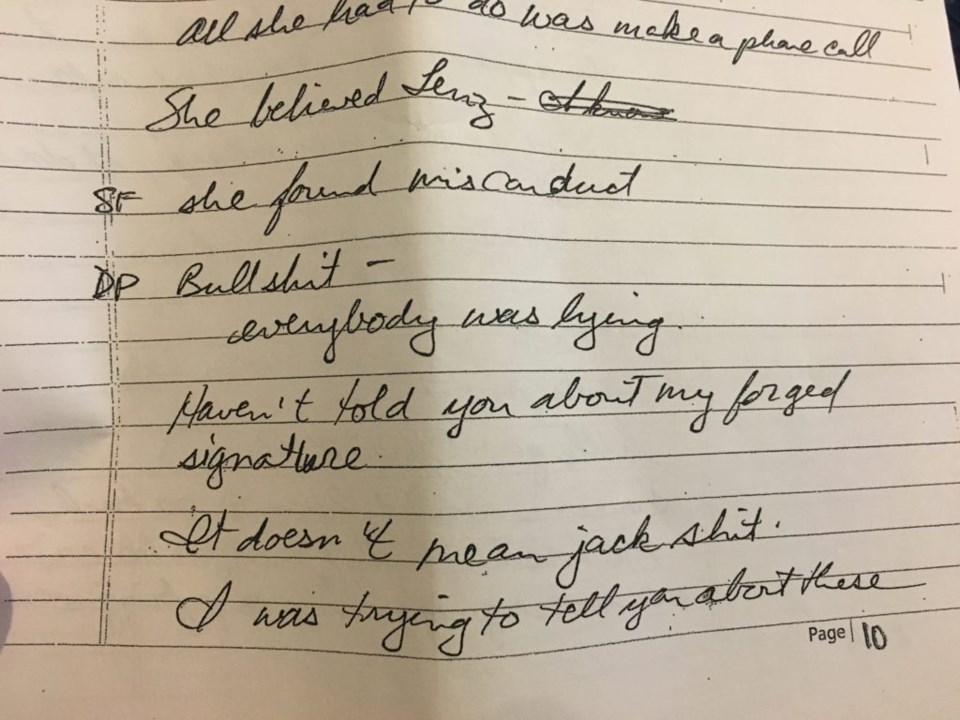 all she had to do was make a phone call
She believed Lenz -
SF she found misconduct
DP Bullshit -
everybody was lying.
Haven't told you about my forged
signature.
It doesn't mean jack shit.
I was trying to tell you about these
Page | 10